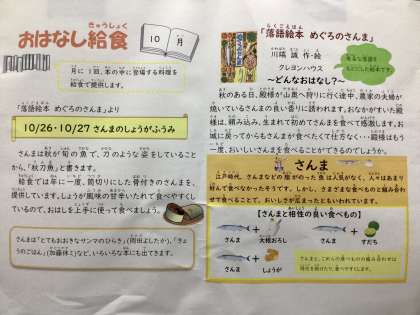 おはなし給食
きゅうしょく
10月
月に1回、本の中に登場する料理を
給食で提供します。
「落語絵本 めぐろのさんま」より
10/26・10/27 さんまのしょうがふうみ
さんまは秋が旬の魚で、刀のような姿をしていること
から、「秋刀魚」と書きます。
給食では年に一度、筒切りにした骨付きのさんまを、
提供しています。しょうが風味の甘辛いたれで食べやすくし
ているので、おはしを上手に使って食べましょう。
さんまは「とてもおおきなサンマのひらき」(岡田よしたか)、「きょ
うのごはん」(加藤休ミ)など、いろいろな本にも出てきます。
らくごえほん
「落語絵本 めぐろのさんま」
川端 誠 作・絵
クレヨンハウス
有名な落語を
もとにした絵本です。
～どんなおはなし?～
秋のある日、殿様が山裏へ狩りに行く途中、農家の夫婦が
焼いているさんまの良い香りに誘われます。おなかがすいた殿
様は、頼み込み、生まれて初めてさんまを食べて感激します。お
城に戻ってからもさんまが食べたくて仕方なく・・殿様はもう
一度、おいしいさんまを食べることができるのでしょうか。
さんま
江戸時代、さんまなどの脂がのった魚は人気がなく、人々はあまり
好んで食べなかったそうです。しかし、さまざまな食べものと組み合わ
せて食べることで、おいしさが広まったともいわれています。
【さんまと相性の良い食べもの】
さんま + 大根おろし
さんま + すだち
さんま + しょうが
さんまと、これらの食べものの組み合わせは